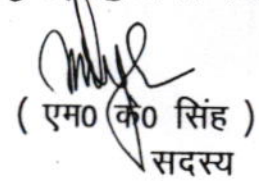 ( एम0 के0 सिंह )
सदस्य